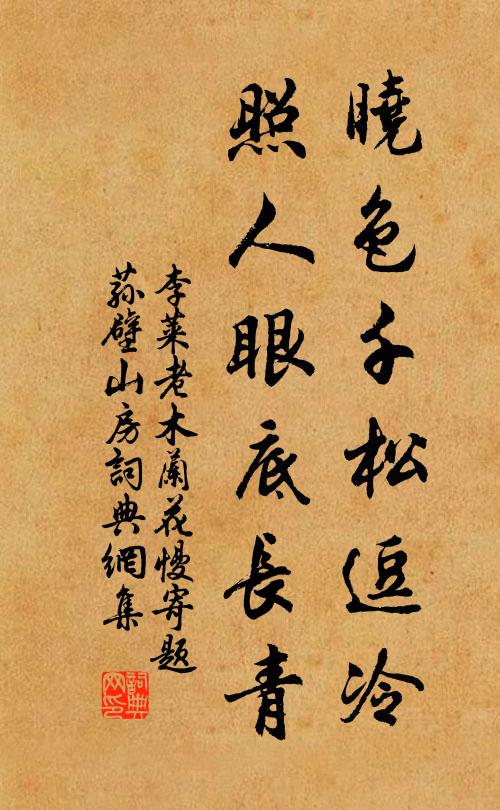 曉色千松逗冷
照人眼底長青
李萊老木蘭花慢寄題
蓀壁山房詞典網集
詞典网印